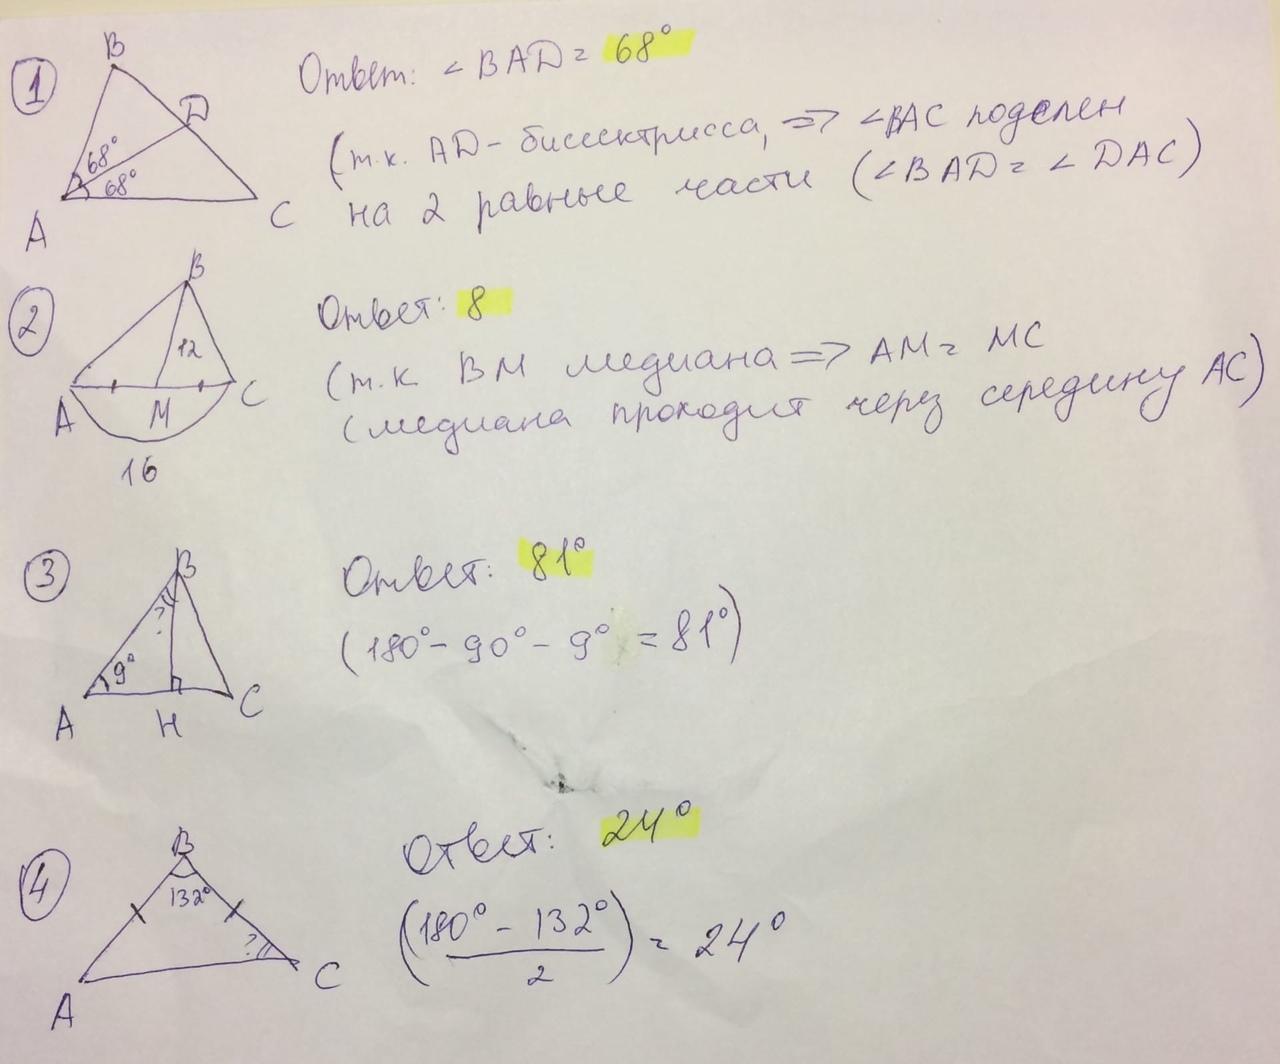 1
B
D
68°
68°
A
C
Ответ: ∠BAD = 68°
(т.к. AD - биссектрисса, => ∠BAC поделен
на 2 равные части (∠BAD = ∠DAC)
2
B
12
A
M
C
16
Ответ: 8
(т.к BM медиана => AM = MC
(медиана проходит через середину AC)
3
B
?
9°
A
H
C
Ответ: 81°
(180° - 90° - 9° = 81°)
4
B
132°
?
A
C
Ответ: 24°
(180° - 132°
2) = 24°